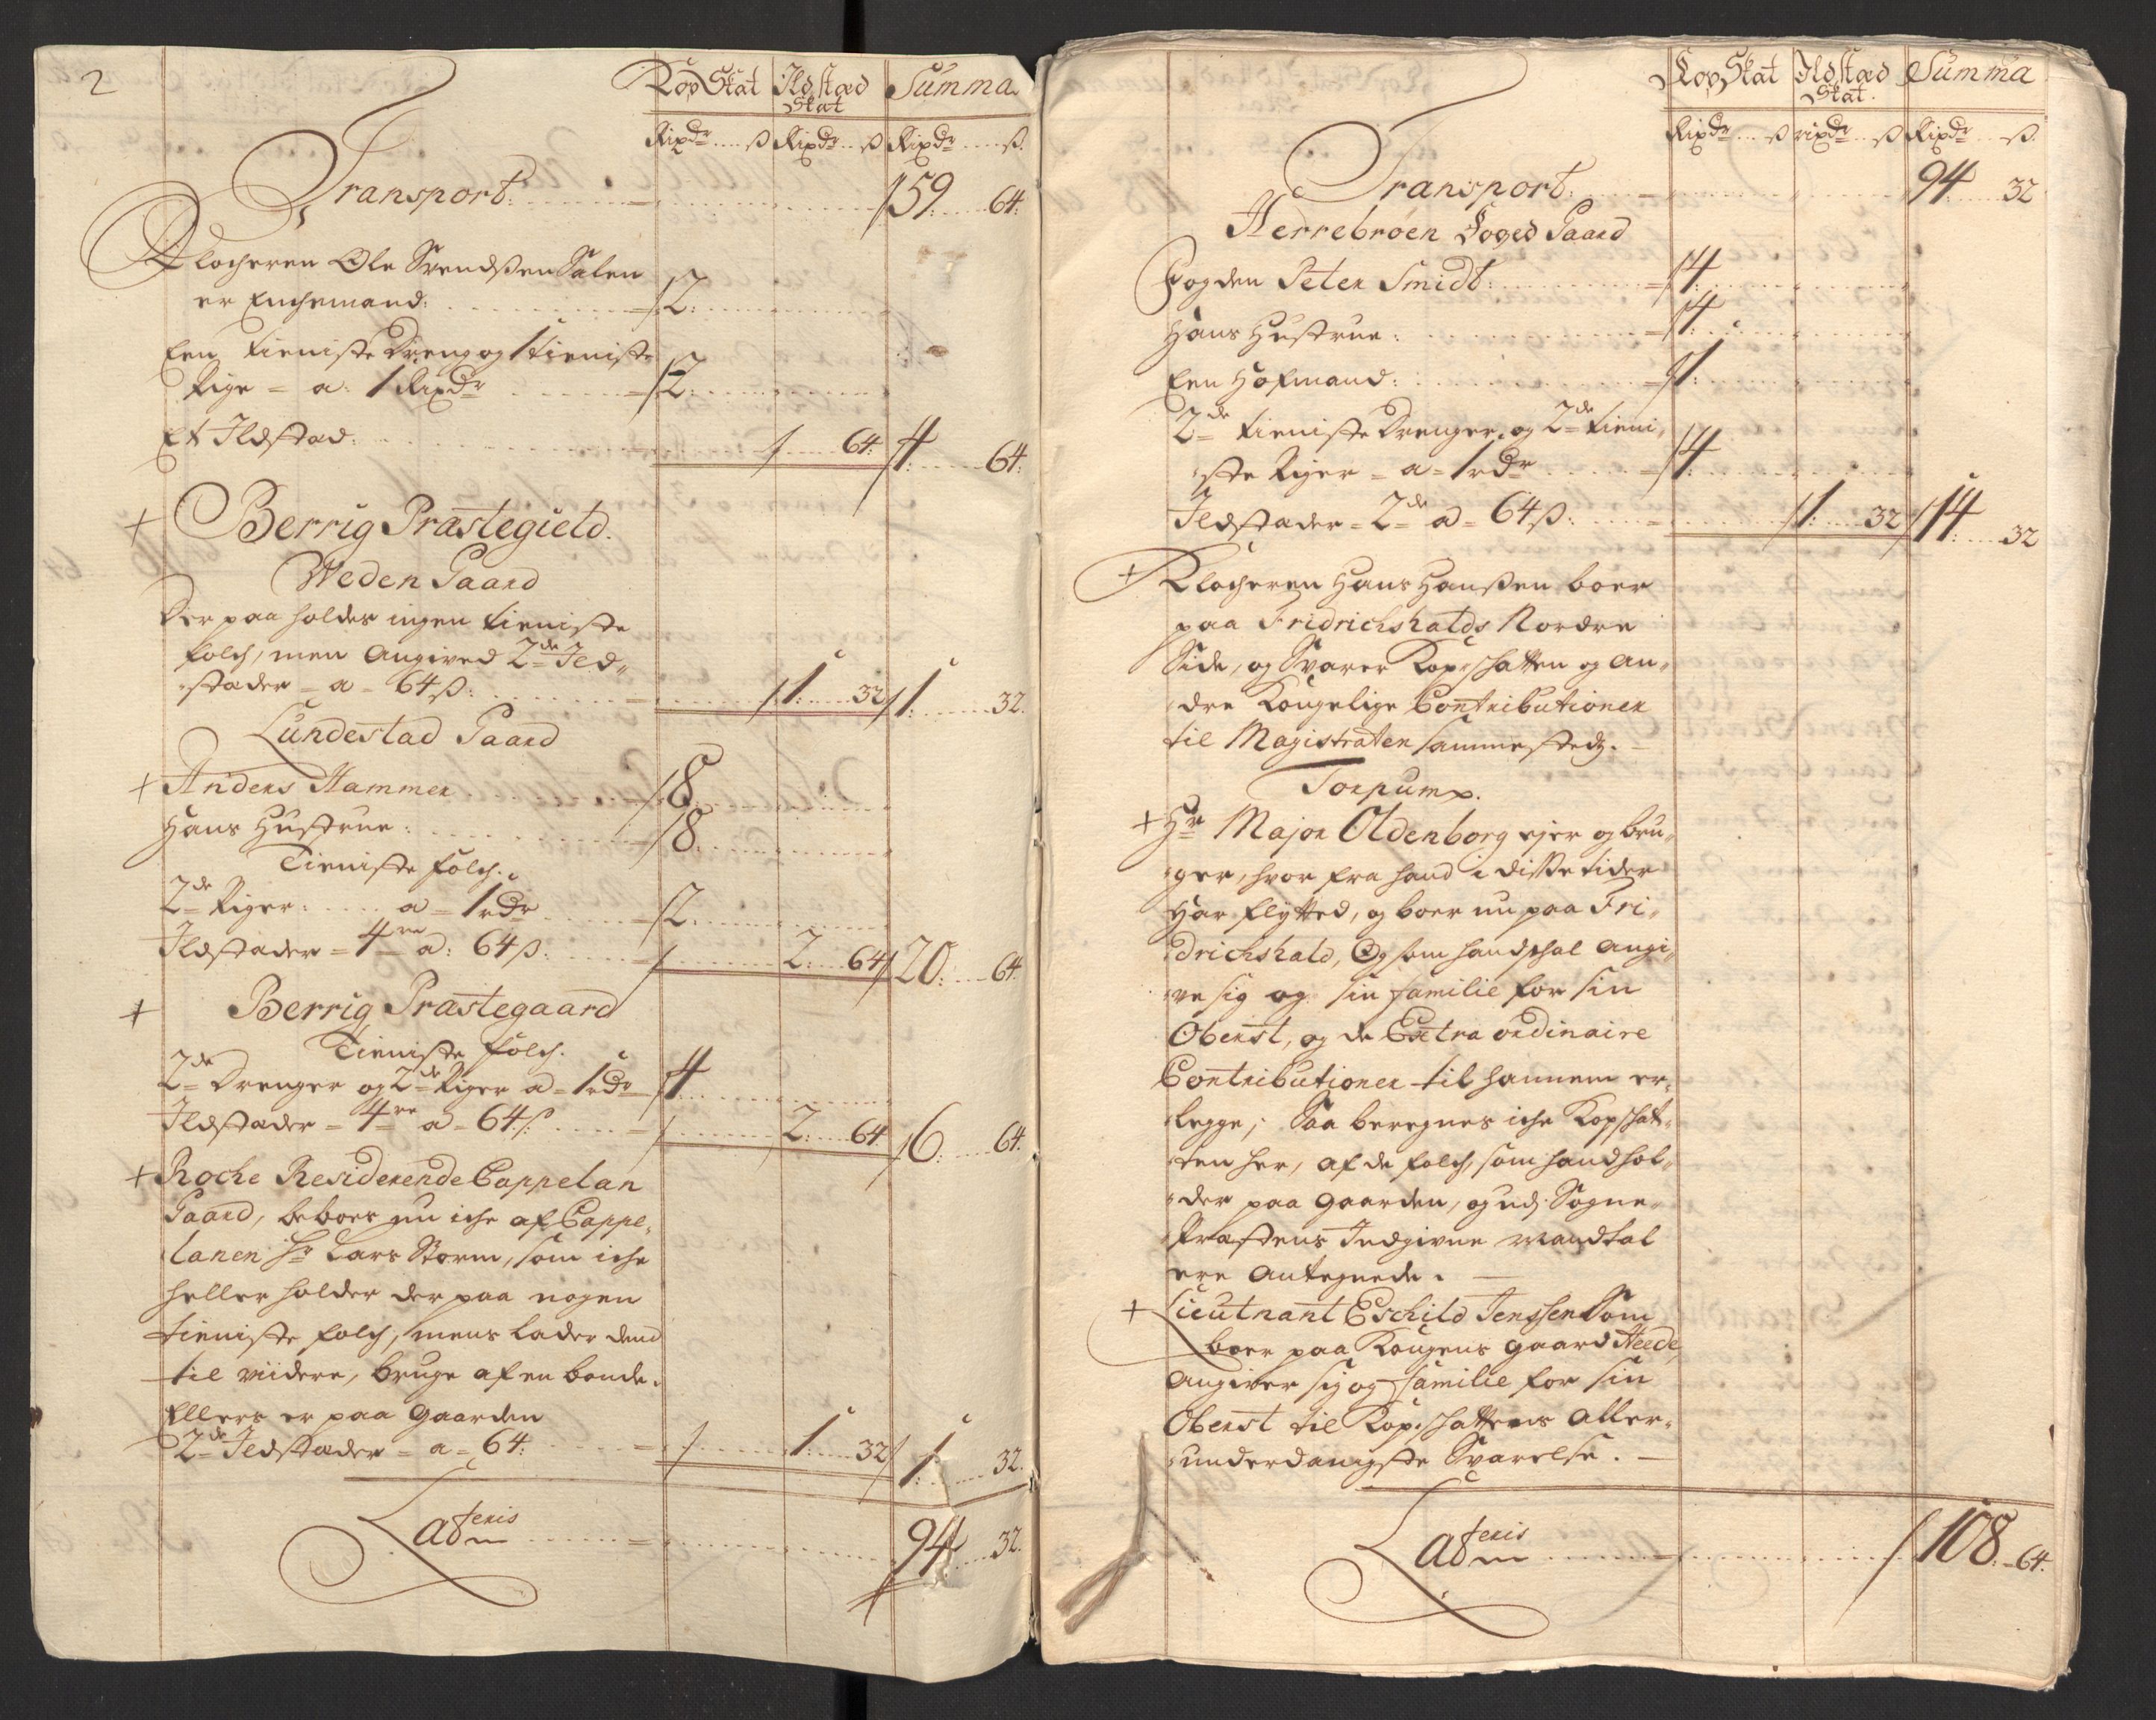 2
Kop Skat Ildsted Skat Summa
Rixdr ß Rixdr ß Rixdr ß
Transport: 59: 64:
Klocheren Ole Svendßen Salen
er Enchemand: 2:
Een tieniste Dreng og 1 tieniste
Pige = a: 1 Rixdr 2:
Et Ildsted: 64: 4: 64:
+ Berrig Præstegield.
Weden Gaard
Der paa holdes ingen tieniste
folch, men Angived 2de Ild„
„stæder = a = 64 ß: 1: 32 1: 32.
Lundestad Gaard
+ Anders Hammer 8:
Hans Hustrue: 8:
Tieniste folch.
2de Piger: a = 1 rdr 2:
Ildstæder = 4re a: 64 ß: 2: 64 20: 64
+ Berrig Præstegaard
Tieniste folch.
2de Drenger og 2de Piger a = 1 rdr 4
Ildstæder = 4re a = 64 ß: 2: 64 6: 64.
+ Roche Residerende Cappelan
Gaard, beboes nu iche af Cappe„
lanen Hr Lars Storm, som iche
heller holder der paa nogen
tieniste folch, mens lader dend
til viidere, bruge af en bonde.
Ellers er paa Gaarden
2de Ildstæder = a = 64: 1: 32 1: 32.
Lateris 94 32.
Kop Skat Ildsted Skat. Summa
Rixdr ß rixdr ß Rixdr ß.
Transport: 94 32
Herrebrøen Hoved Gaard
Fogden Peter Smidt: 4:
Hans Hustrue: 4:
Een Hofmand: 1:
2de tieniste Drenger, og 2de tieni„
„ste Piger = a = 1 rdr 4:
Ildstæder = 2de a = 64 ß: 1: 32 14: 32
+ Klocheren Hans Hanßen boer
paa Fridrichshalds Nordre
Side, og Svarer Kop,schatten og an„
„dre Kongelige Contributioner
til Magistraten sammestedz.
Torpum.
+ Hr Major Oldenborg ejer og bru„
„ger, hvor fra hand i disse tider
har flytted, og boer nu paa Fri„
„drichshald, Og som hand schal angi„
„ve sig og sin familie for sin
Oberst, og de Extra ordinaire
Contributioner til hannem er„
„legge; Saa beregnes iche Kopschat„
„ten her, af de folch, som hand hol„
„der paa Gaarden, og udj Sogne„
„Præstens Indgivne Mandtal
ere Antegnede.
+ Lieutnant Eschild Jenssen Som
boer paa Kongens Gaard Heede,
Angiver sig og familie for sin
Oberst til Kop,schattens Aller„
„underdanigste Svarelse.
Lateris 108: 64: